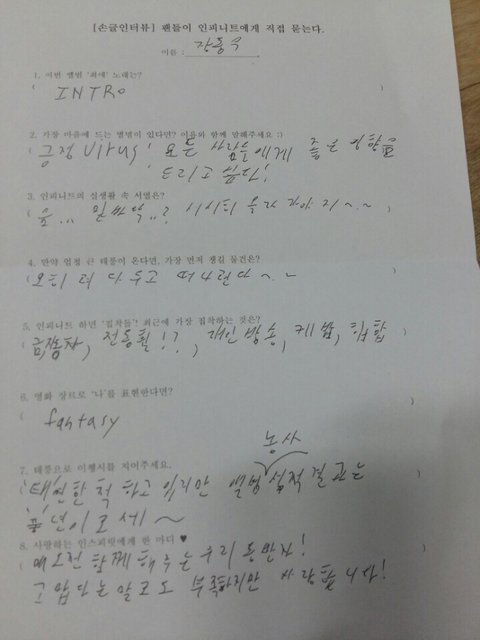 [손글인터뷰] 팬들이 인피니트에게 직접 묻는다.
이름 : 장동우
1. 이번 앨범 '최애' 노래는?
( INTRO )
2. 가장 마음에 드는 별명이 있다면? 이유와 함께 말해주세요 :)
( 긍정 virus! 모든 사람들에게 좋은 영향을
드리고 싶다! )
3. 인피니트의 실생활 속 서열은?
( 음... 밑바닥..? 서서히 올라가야지~.~ )
4. 만약 엄청 큰 태풍이 온다면, 가장 먼저 챙길 물건은?
( 다 두고 떠나련다~.~ )
5. 인피니트 하면 '집착돌'! 최근에 가장 집착하는 것은?
( 전동휠!?, 개인방송, 케밥, 힙합 )
6. 영화 장르로 '나'를 표현한다면?
( fantasy )
농사
7. 태풍으로 이행시를 지어주세요.
( 태연한 척 하고 있지만 앨범 성적 결과는
풍년이로세~ )
8. 사랑하는 인스피릿에게 한 마디 ♥
( 함께 해주는 우리 동반자!
고맙다는 말로도 부족하지만 사랑합니다! )